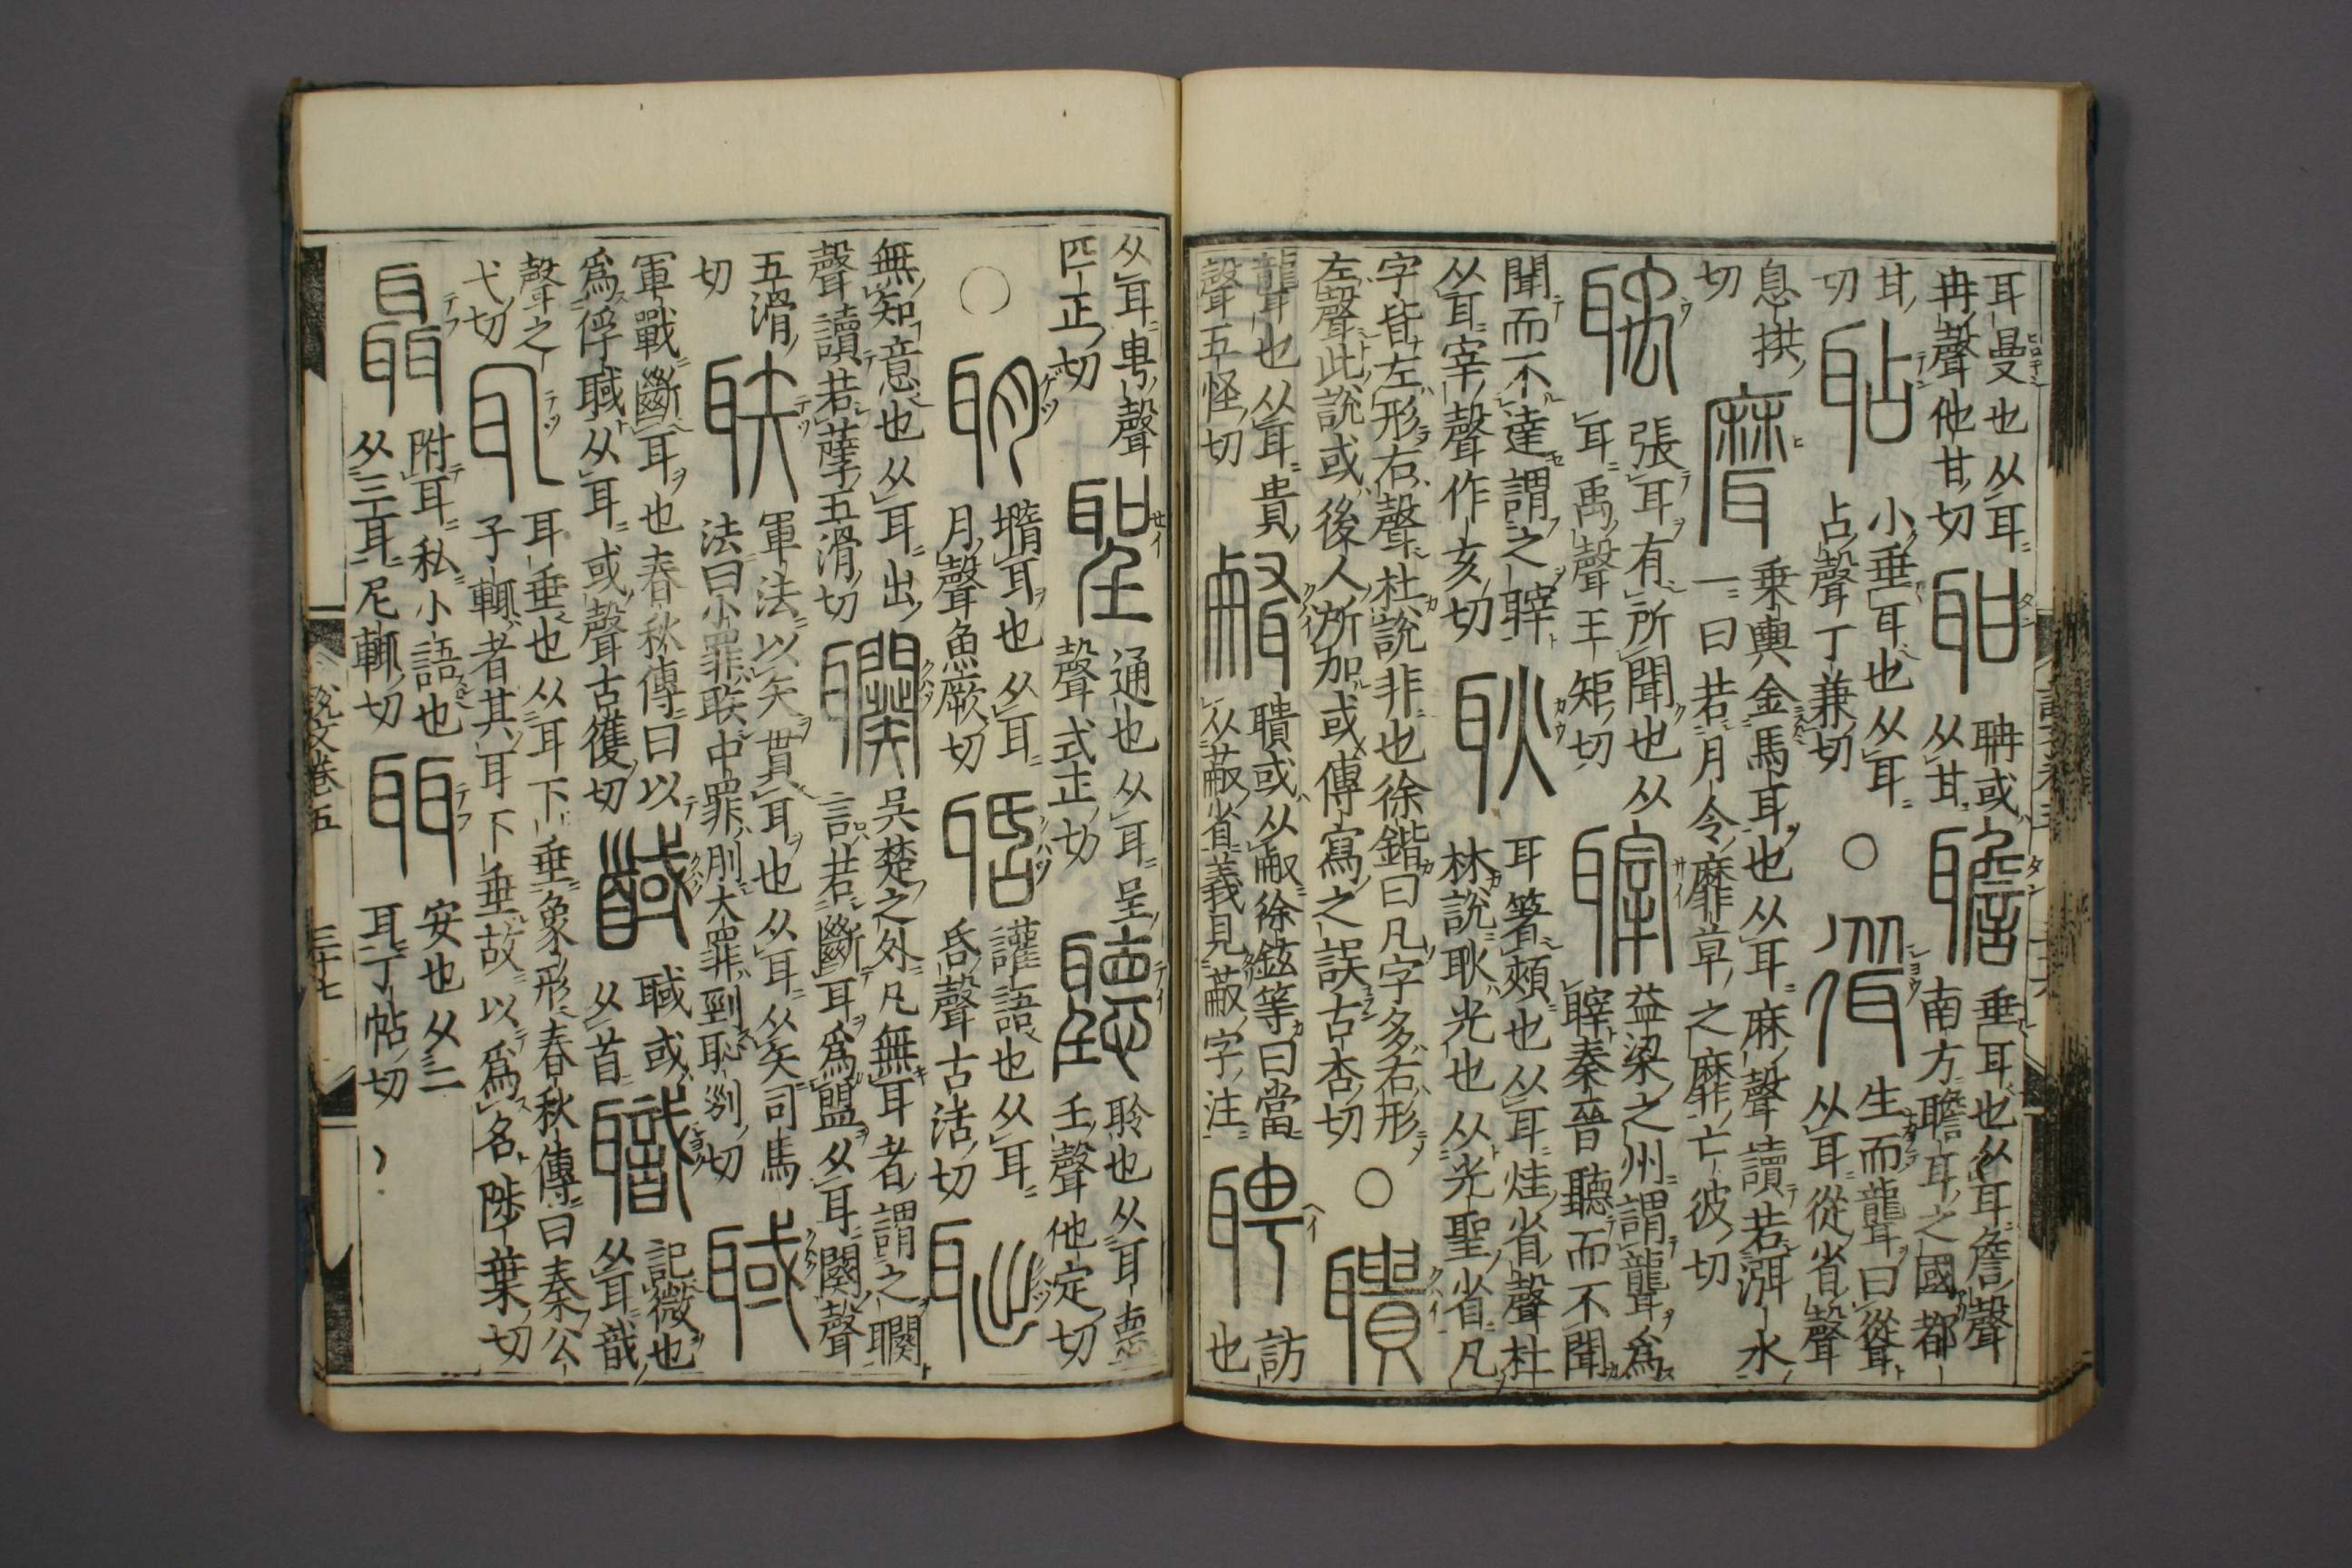 耳曼也从耳
冉聲他甘切
聃或
从甘
垂耳也从耳詹聲
南方聸耳之國都
甘
切
小垂耳也从耳
占聲丁兼切
○
生而聾曰聳
从耳從省聲
息拱
切
乗輿金馬耳也从耳麻聲讀若渳水
一曰若月令靡草之靡亡彼切
張耳有所聞也从
耳禹聲王矩切
益梁之州謂聾爲
䏁秦晉聽而不聞
聞而不達謂之䏁
从耳宰聲作亥切
耳箸頰也从耳烓省聲杜
林說耿光也从光聖省凡
字皆左形右聲杜說非也徐鍇曰凡字多右形
左聲此說或後人所加或傳寫之誤古杏切
○
聾也从耳貴
聲五怪切
聵或从㕟徐鉉等曰當
从蔽省義見蔽字注
訪
也
从耳甹聲
匹正切
通也从耳呈
聲式正切
聆也从耳悳
𡈼聲他定切
○
墮耳也从耳
月聲魚厥切
讙語也从耳
𠯑聲古活切
無知意也从耳出
聲讀若孽五滑切
吳楚之外凡無耳者謂之䦧
言若斷耳爲盟从耳闋聲
五滑
切
軍法以矢貫耳也从耳从矢司馬
法曰小罪聅中罪刖大罪剄恥列切
軍戰斷耳也春秋傳曰以
爲俘聝从耳或聲古獲切
聝或
从首
記微也
从耳戠
聲之
弋切
耳垂也从耳下垂象形春秋傳曰秦公
子輒者其耳下垂故以爲名陟葉切
附耳私小語也
从三耳尼輒切
安也从二
耳丁帖切
說文卷五
三十七